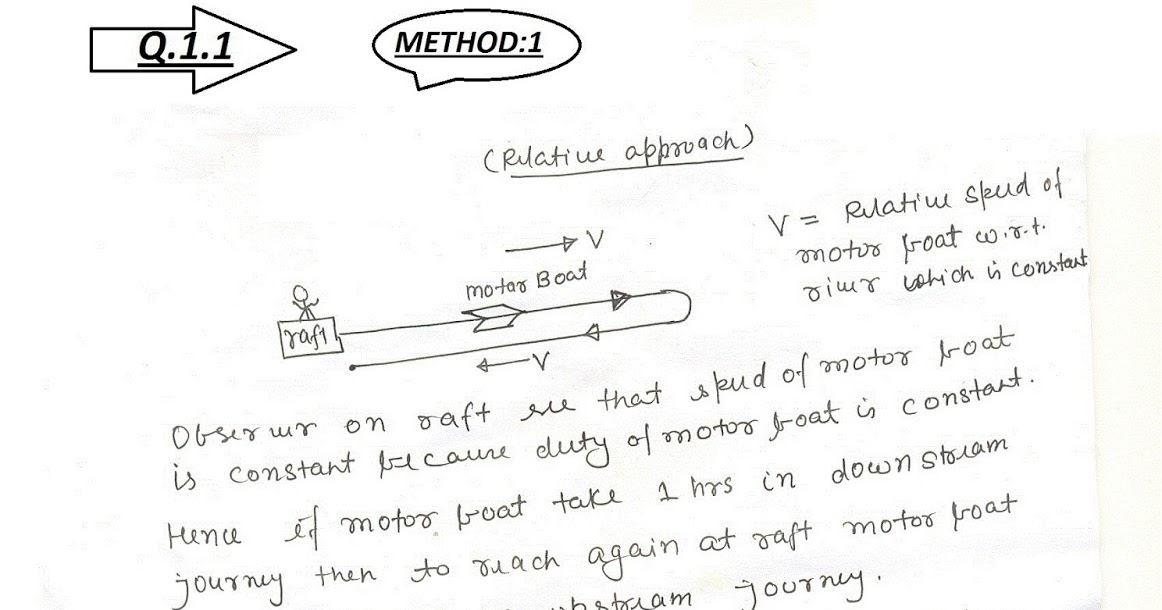 Q.1.1
METHOD:1
(Relative approach)
V = Relative speed of
motor boat w.r.t.
river which is constant
→ V
motor Boat
raft
← V
Observer on raft see that speed of motor boat
is constant because duty of motor boat is constant.
Hence if motor boat take 1 hrs in downstream
journey then to reach again at raft motor boat
journey.